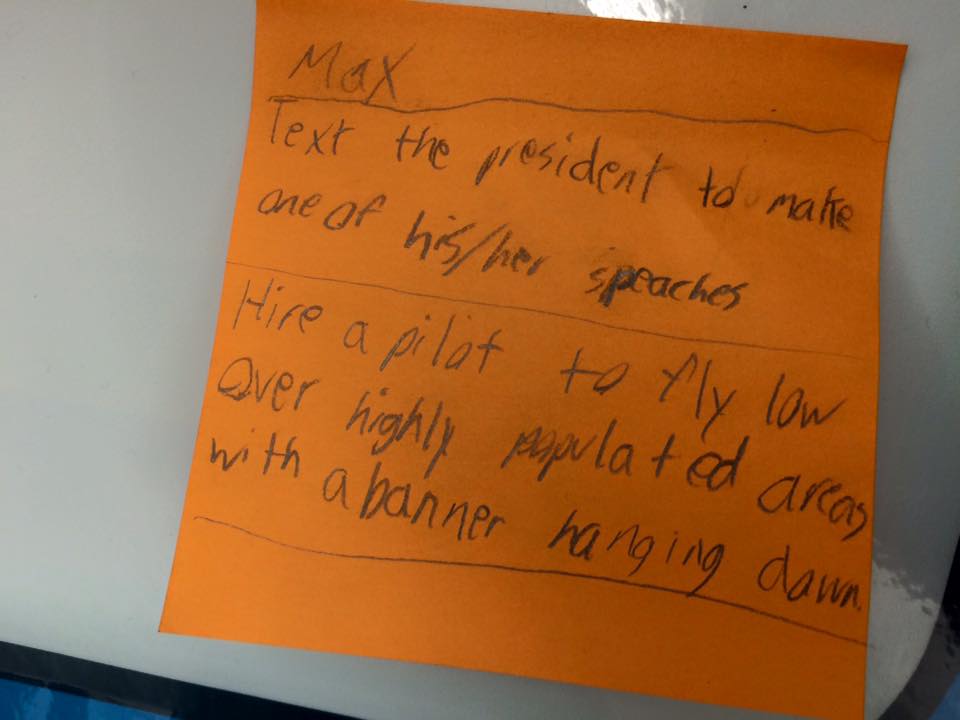 Max
Text the president to make
one of his/her speaches
Hire a pilot to fly low
Over highly populated areas
with a banner hanging down.